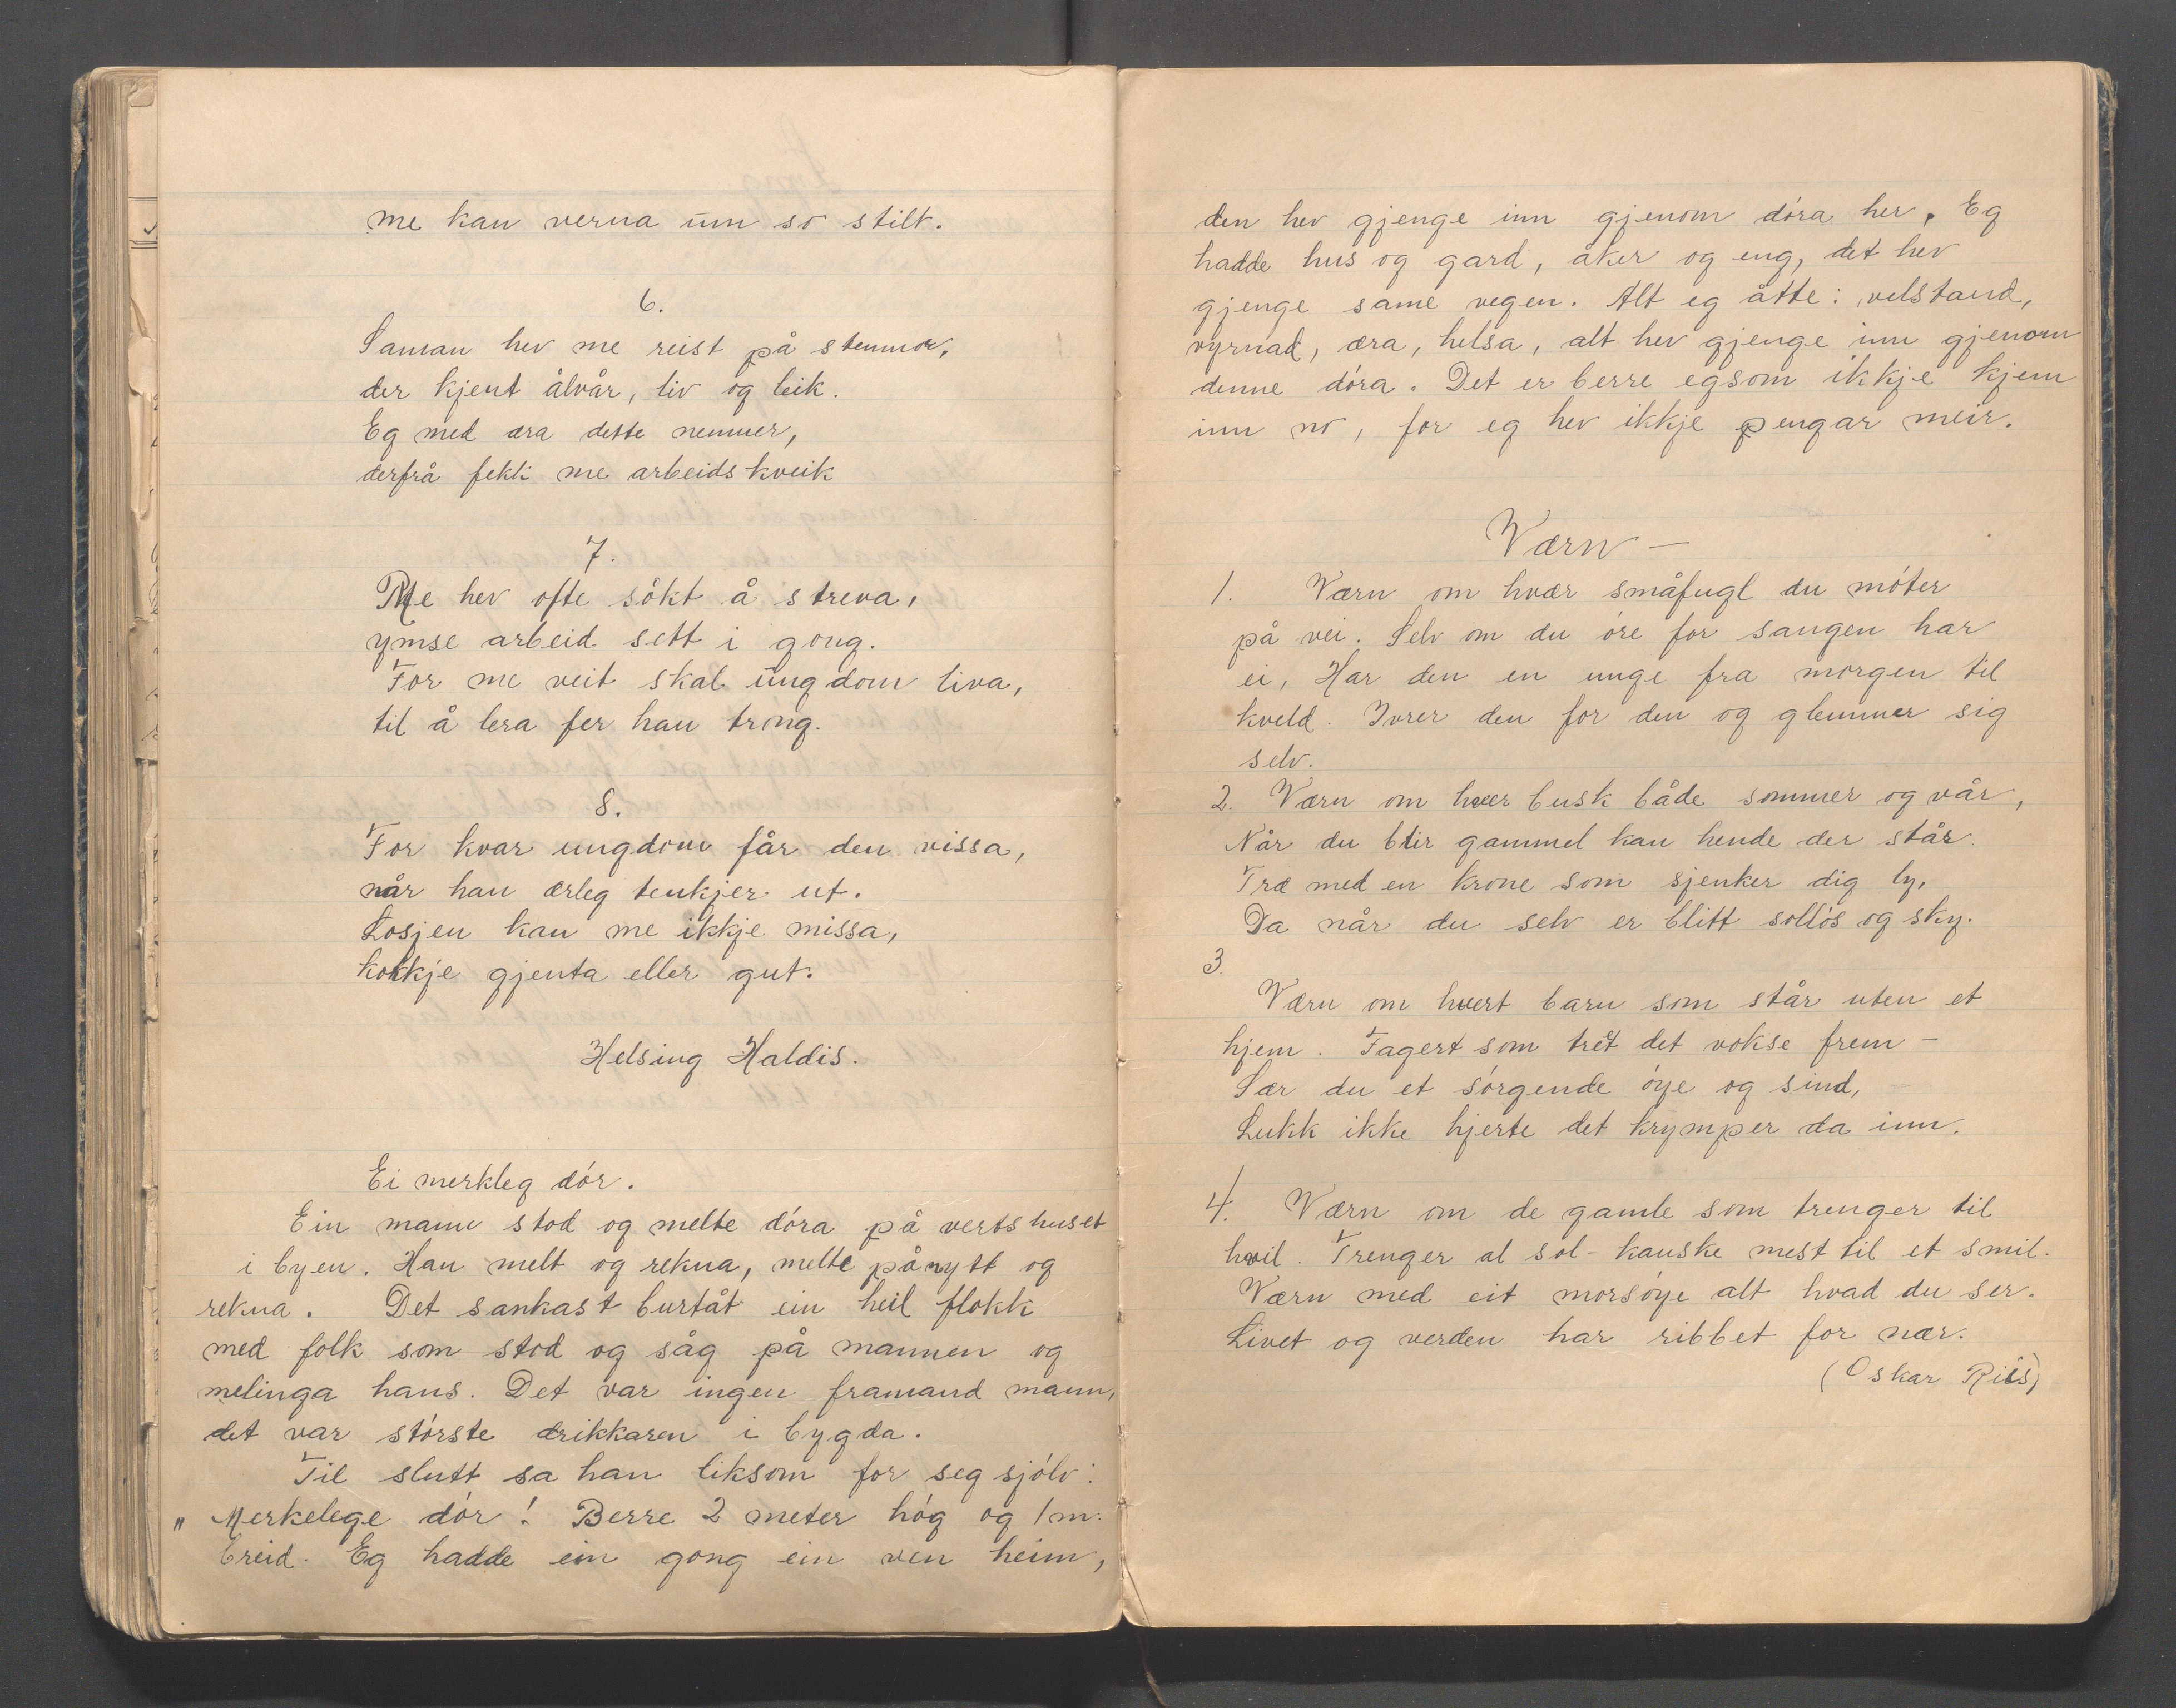 me kan verna um so stilt.
6.
Saman hev me reist på stemnor,
der kjent ålvår, liv og leik.
Eg med æra dette nemner,
derfrå fekk me arbeidskveik
7.
Me hev ofte sökt å streva,
ymse arbeid sett i gong.
For me veit skal ungdom liva,
til å lera fer han trong.
8.
For kvar ungdom får den vissa,
når han ærleg tenkjer ut.
Losjen kan me ikkje missa,
kokkje gjenta eller gut.
Helsing Haldis.
Ei merkleg dór.
Ein mann stod og melte dóra på vertshuset
i byen. Han melt og rekna, melte pånytt og
rekna. Det sankast burtåt ein heil flokk
med folk som stod og såg på mannen og
melinga hans. Det var ingen framand mann,
det var störste drikkaren i bygda.
Til slutt sa han liksom for seg sjólv:
„ Merkelege dór! Berre 2 meter hóg og 1 m.
breid. Eg hadde ein gong ein ven heim,
den hev gjenge inn gjenom dóra her. Eg
hadde hus og gard, åker og eng, det hev
gjenge same vegen. Alt eg åtte: velstand,
vyrnad, æra, helsa, alt hev gjenge inn gjenom
denne dóra. Det er berre eg som ikkje kjem
inn no, for eg hev ikkje pengar meir.
Værn —
1. Værn om hvær småfugl du móter
på vei. Selv om du óre for sangen har
ei, Har den en unge fra morgen til
kveld. Ivrer den for den og glemmer sig
selv.
2. Værn om hver busk både sommer og vår,
Når du blir gammel kan hende der står.
Træ med en krone som sjenker dig ly,
Da når du selv er blitt sollós og sky.
3.
Værn om hvert barn som står uten et
hjem. Fagert som treet det vokse frem —
Sær du et sórgende óye og sind,
Lukk ikke hjerte det krymper da inn.
4. Værn om de gamle som trenger til
hvil. Trenger al sol - kanske mest til et smil.
Værn med eit morsóye alt hvad du ser.
Livet og verden har ribbet for nær.
(Oskar Riis)